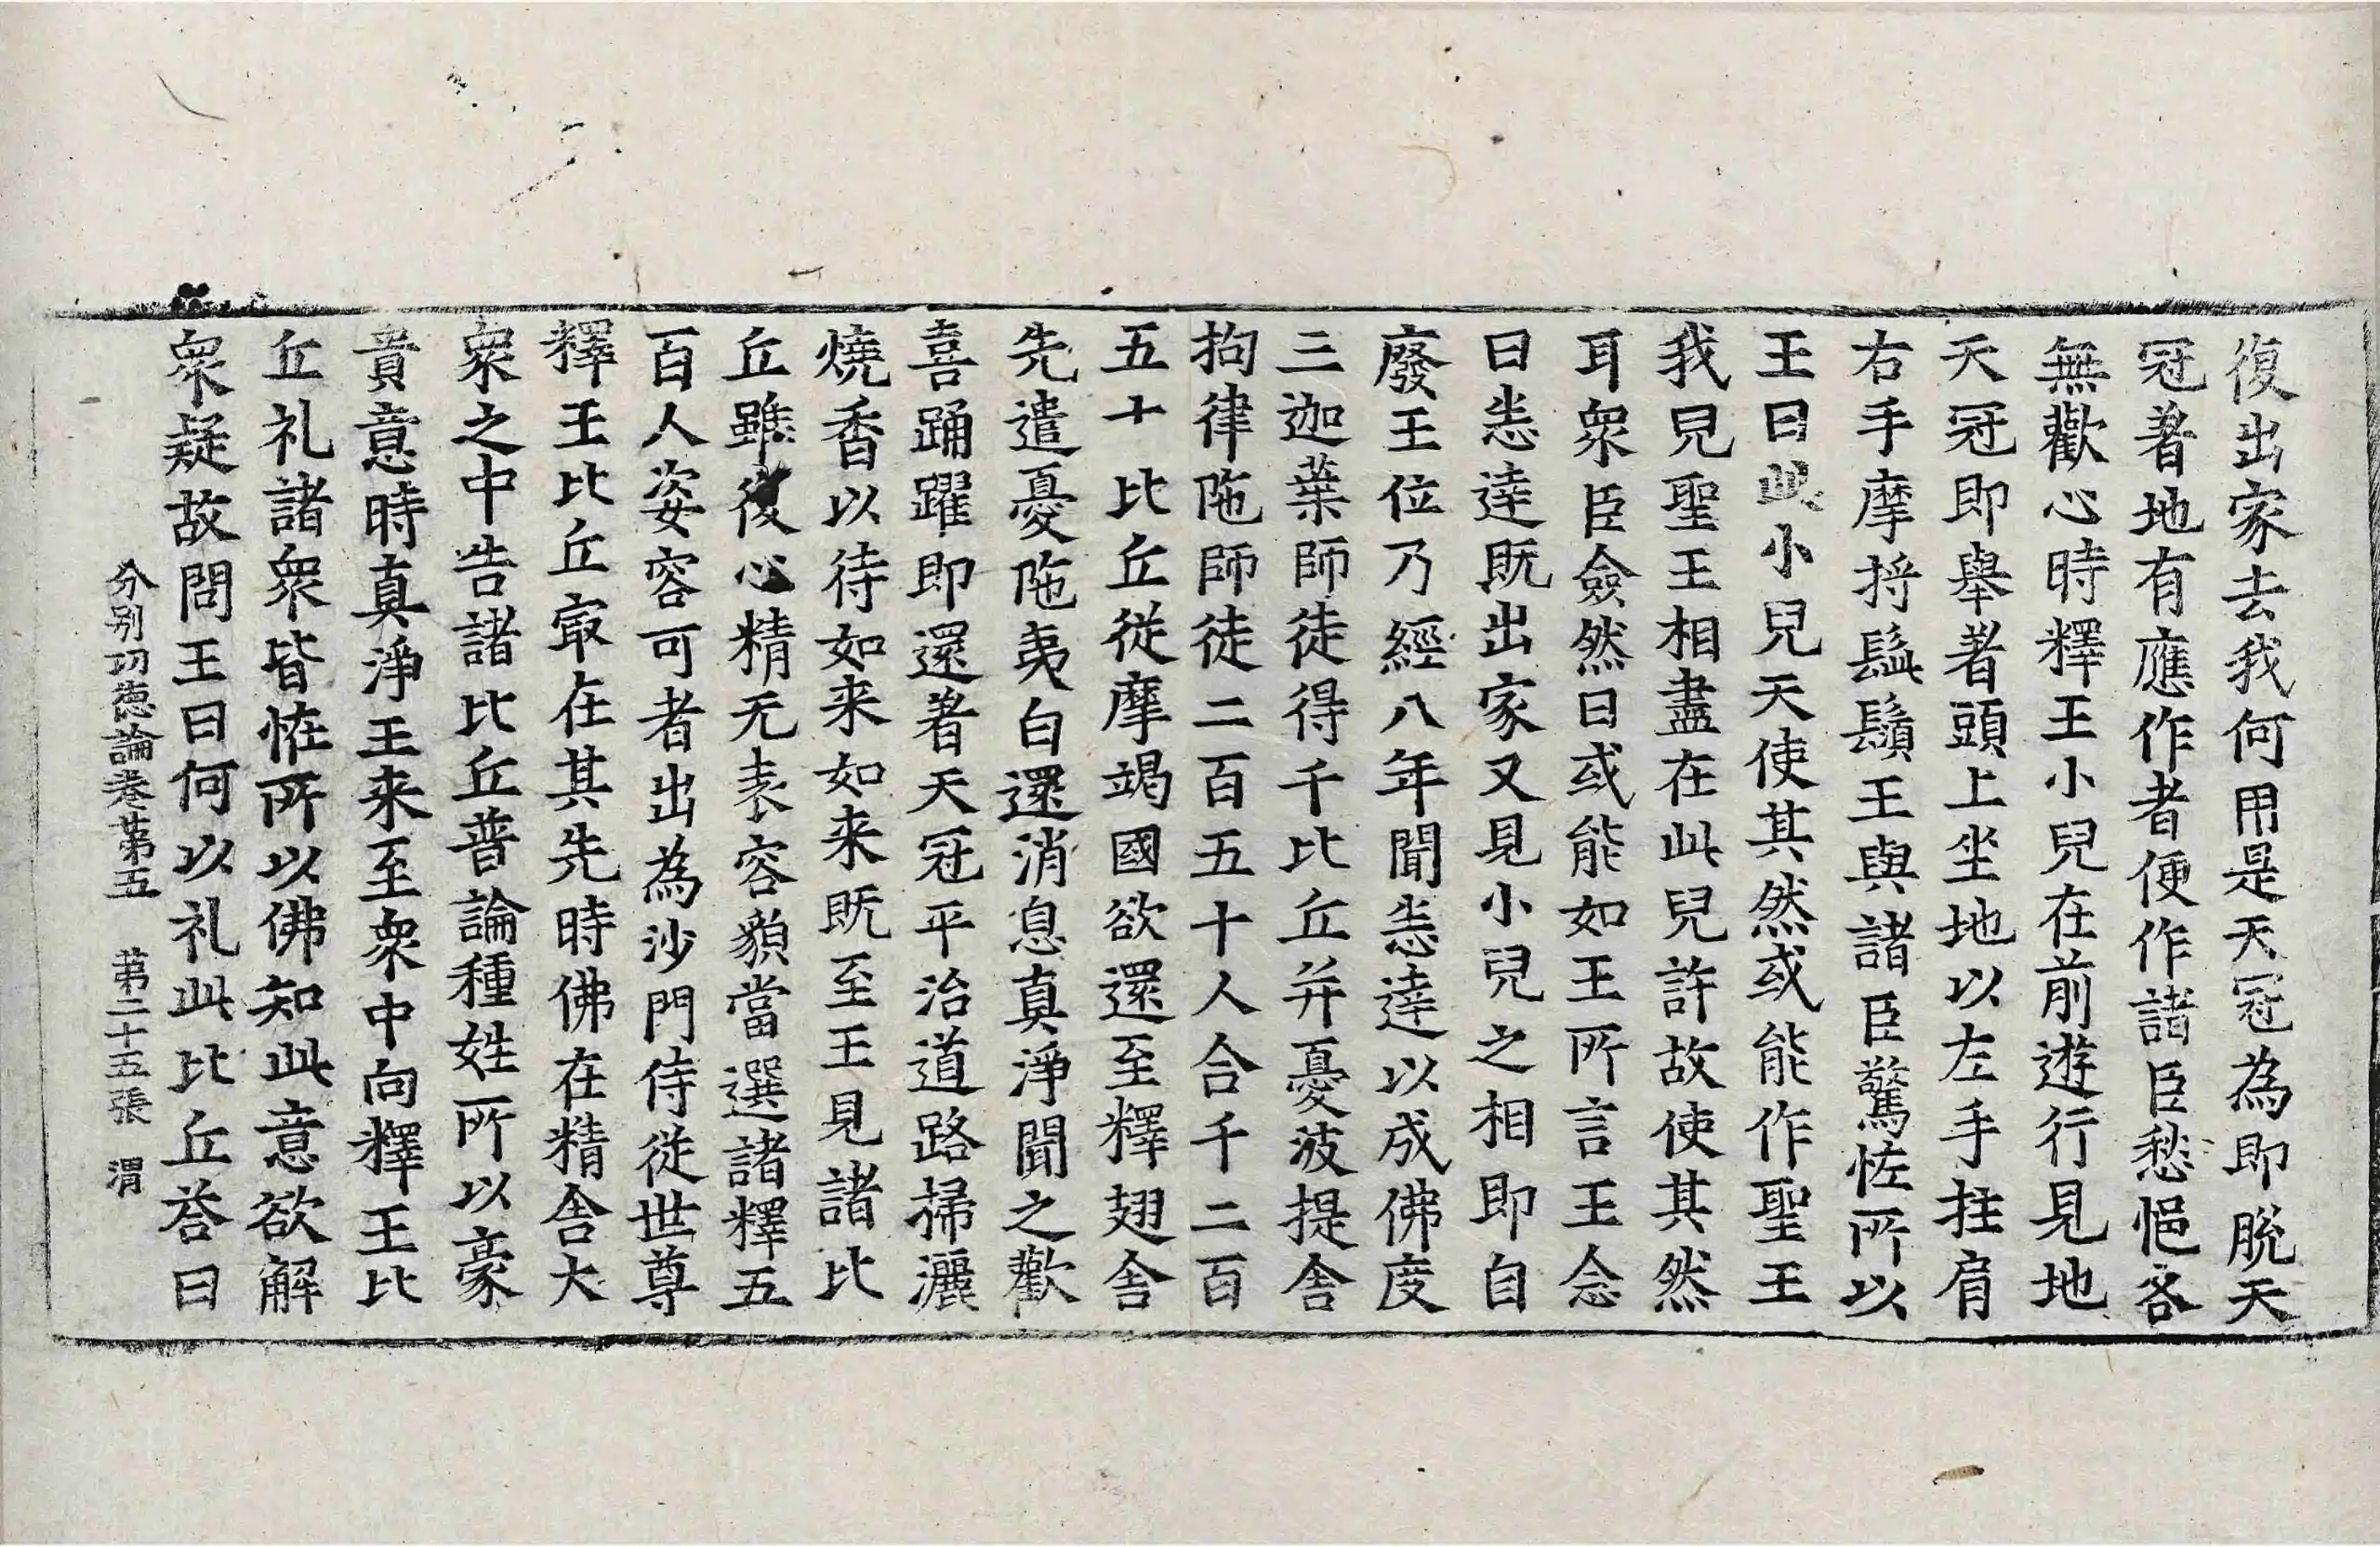 復出家去我何用是天冠為即脫天
冠著地有應作者便作諸臣愁悒各
無歡心時釋王小兒在前遊行見地
天冠即舉著頭上坐地以左手拄肩
右手摩捋髭鬚王與諸臣驚怪所以
王曰此小兒天使其然或能作聖王
我見聖王相盡在此兒許故使其然
耳衆臣僉然曰或能如王所言王念
曰恚達既出家又見小兒之相即自
廢王位乃經八年聞恚達以成佛度
三迦葉師徒得千比丘并憂波提舍
拘律陁師徒二百五十人合千二百
五十比丘從摩竭國欲還至釋翅舍
先遣憂陁夷白還消息真淨聞之歡
喜踊躍即還著天冠平治道路掃灑
燒香以待如来如来既至王見諸比
丘雖復心精无表容貌當選諸釋五
百人姿容可者出為沙門侍從世尊
釋王比丘㝡在其先時佛在精舍大
衆之中告諸比丘普論種姓所以豪
貴意時真淨王来至衆中向釋王比
丘礼諸衆皆恠所以佛知此意欲解
衆疑故問王曰何以礼此比丘荅曰
分別功德論卷苐五　苐二十五張　渭